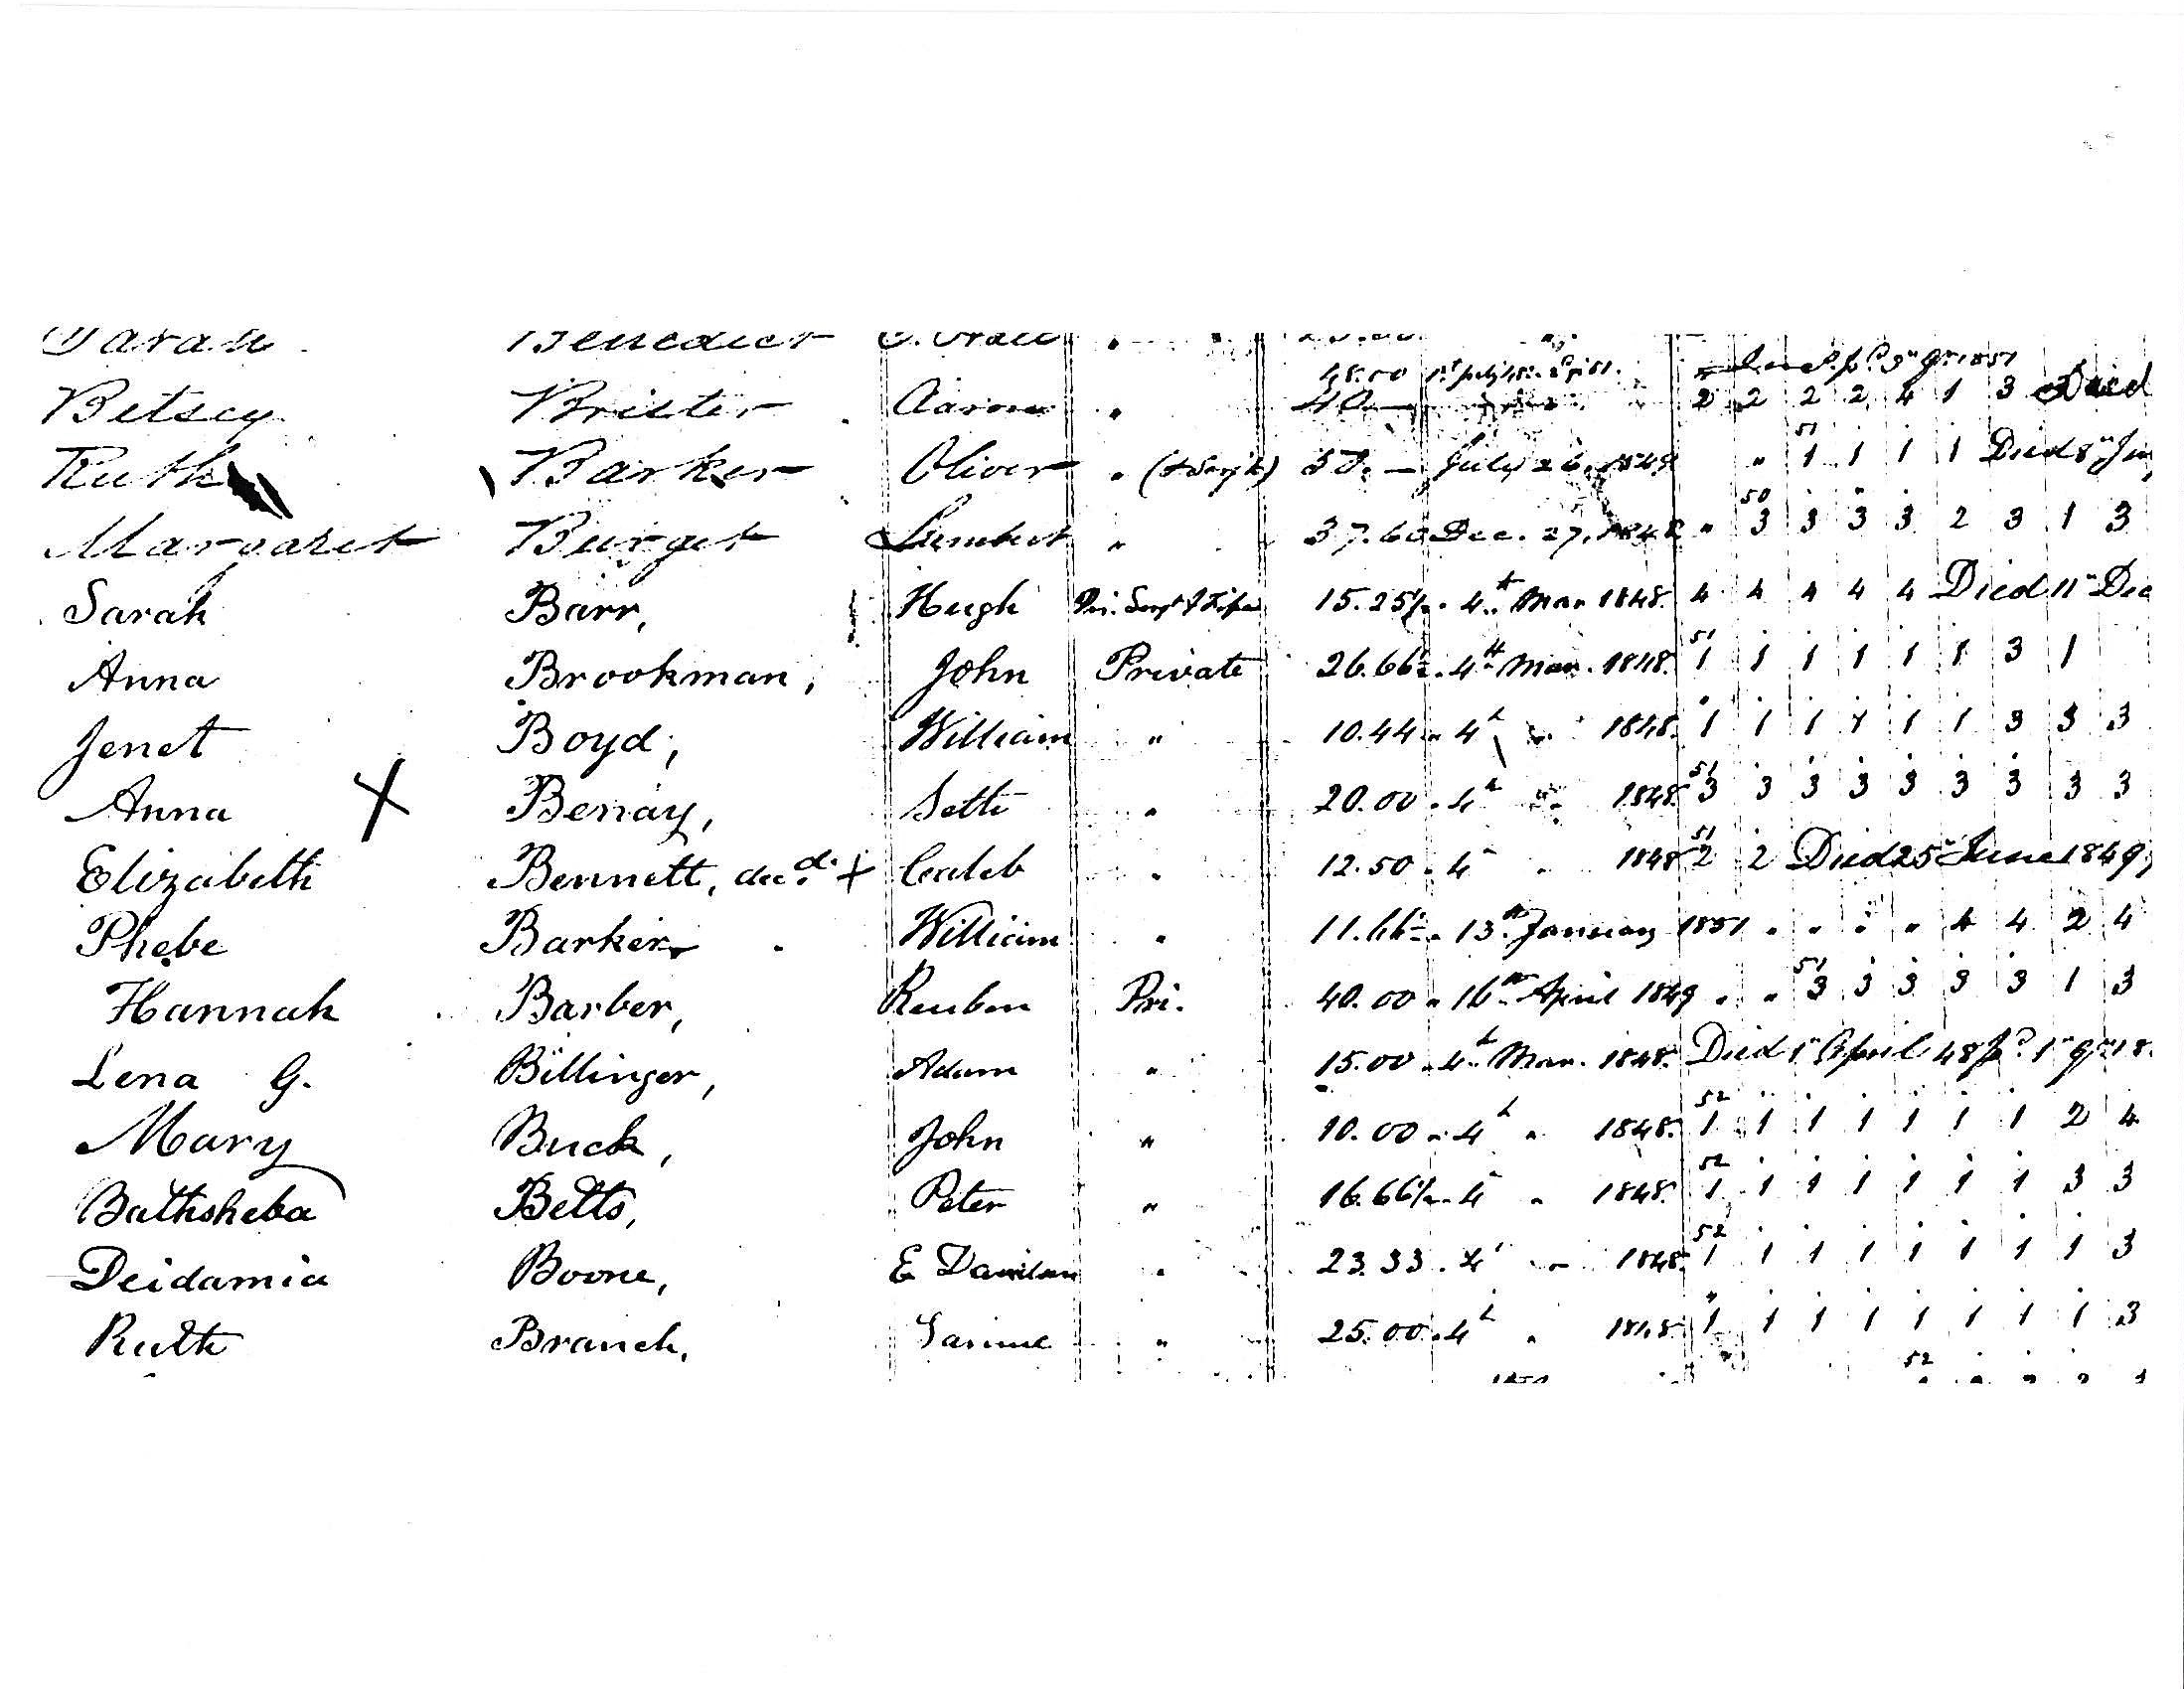 Sarah Benedict
48.00
Betsey Brister Aaron " 40.— 2 2 2 2 4 1 3 Died
51
Ruth Barker Oliver " (& Serjt) July 26, 1849 " 1 1 1 1 Died 8" Jun
50
Margaret Burget Lambert " 37.60 Dec. 27, 1848 " 3 3 3 3 2 3 1 3
Sarah Barr, Hugh Pri. Sergt & Fifer 15.25 4th Mar 1848. 4 4 4 4 4 Died 11" Dec
51
Anna Brookman, John Private 26.66 4th Mar. 1848. 1 1 1 1 1 1 3 1
Jenet Boyd, William " 10.44 " 4th " 1848. 1 1 1 1 1 1 3 3 3
51
Anna X Benay, Seth " 20.00 " 4th " 1848. 3 3 3 3 3 3 3 3 3
51
Elizabeth Bennett, decd. + Caleb " 12.50 " 4" " 1848 2 2 Died 25" June 1849,
Phebe Barker William " 11.66 " 13th January 1851 " " " " 4 4 2 4
51
Hannah Barber, Reuben Pri. 40.00 " 16th April 1849 " " 3 3 3 3 3 1 3
Lena G. Billinger, Adam " 15.00 " 4th Mar. 1848. Died 1" April 48 Pd. 1" qr 18
52
Mary Buck, John " 10.00 " 4th " 1848. 1 1 1 1 1 1 1 2 4
52
Bathsheba Betts, Peter " 16.66 " 4" " 1848. 1 1 1 1 1 1 1 3 3
52
Deidamia Boone, E 23.33 " 4" " 1848. 1 1 1 1 1 1 1 1 3
Ruth Branch, " 25.00 " 4th " 1848. 1 1 1 1 1 1 1 1 3
52